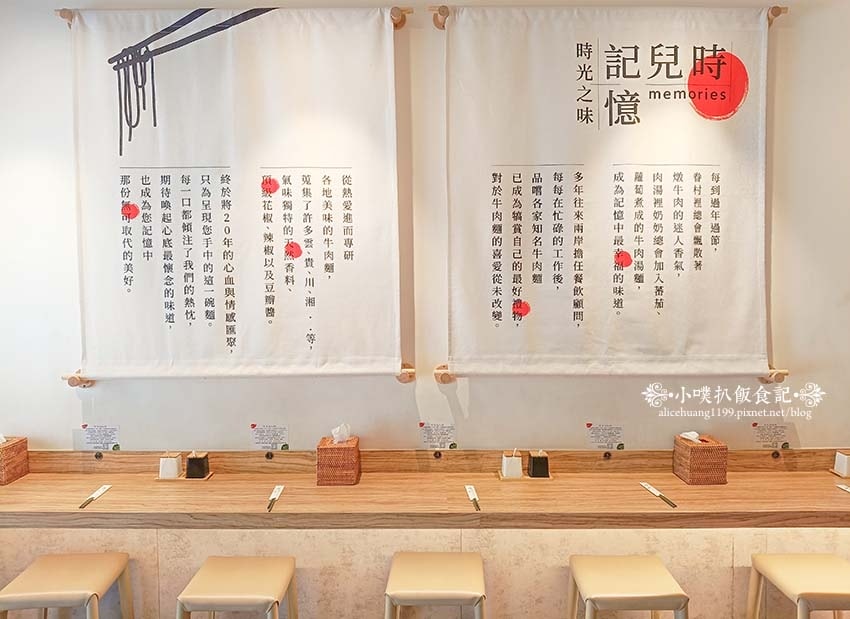 時兒時
記憶
memories
時光之味
每到過年過節，
眷村裡總會飄散著
燉牛肉的迷人香氣，
肉湯裡奶奶總會加入蕃茄、
蘿蔔煮成的牛肉湯麵，
成為記憶中最幸福的味道。
多年往來兩岸擔任餐飲顧問，
每每在忙碌的工作後，
品嚐各家知名牛肉麵
已成為犒賞自己的最好禮物，
對於牛肉麵的喜愛從未改變。
從熱愛進而專研
各地美味的牛肉麵，
蒐集了許多雲、貴、川、湘...等，
氣味獨特的天然香料、
頂級花椒、辣椒以及豆瓣醬。
終於將20年的心血與情感匯聚，
只為呈現您手中的這一碗麵。
每一口都傾注了我們的熱忱，
期待喚起心底最懷念的味道，
也成為您記憶中
那份無可取代的美好。
小噗扒飯食記
alicehuang1199.pixnet.net/blog